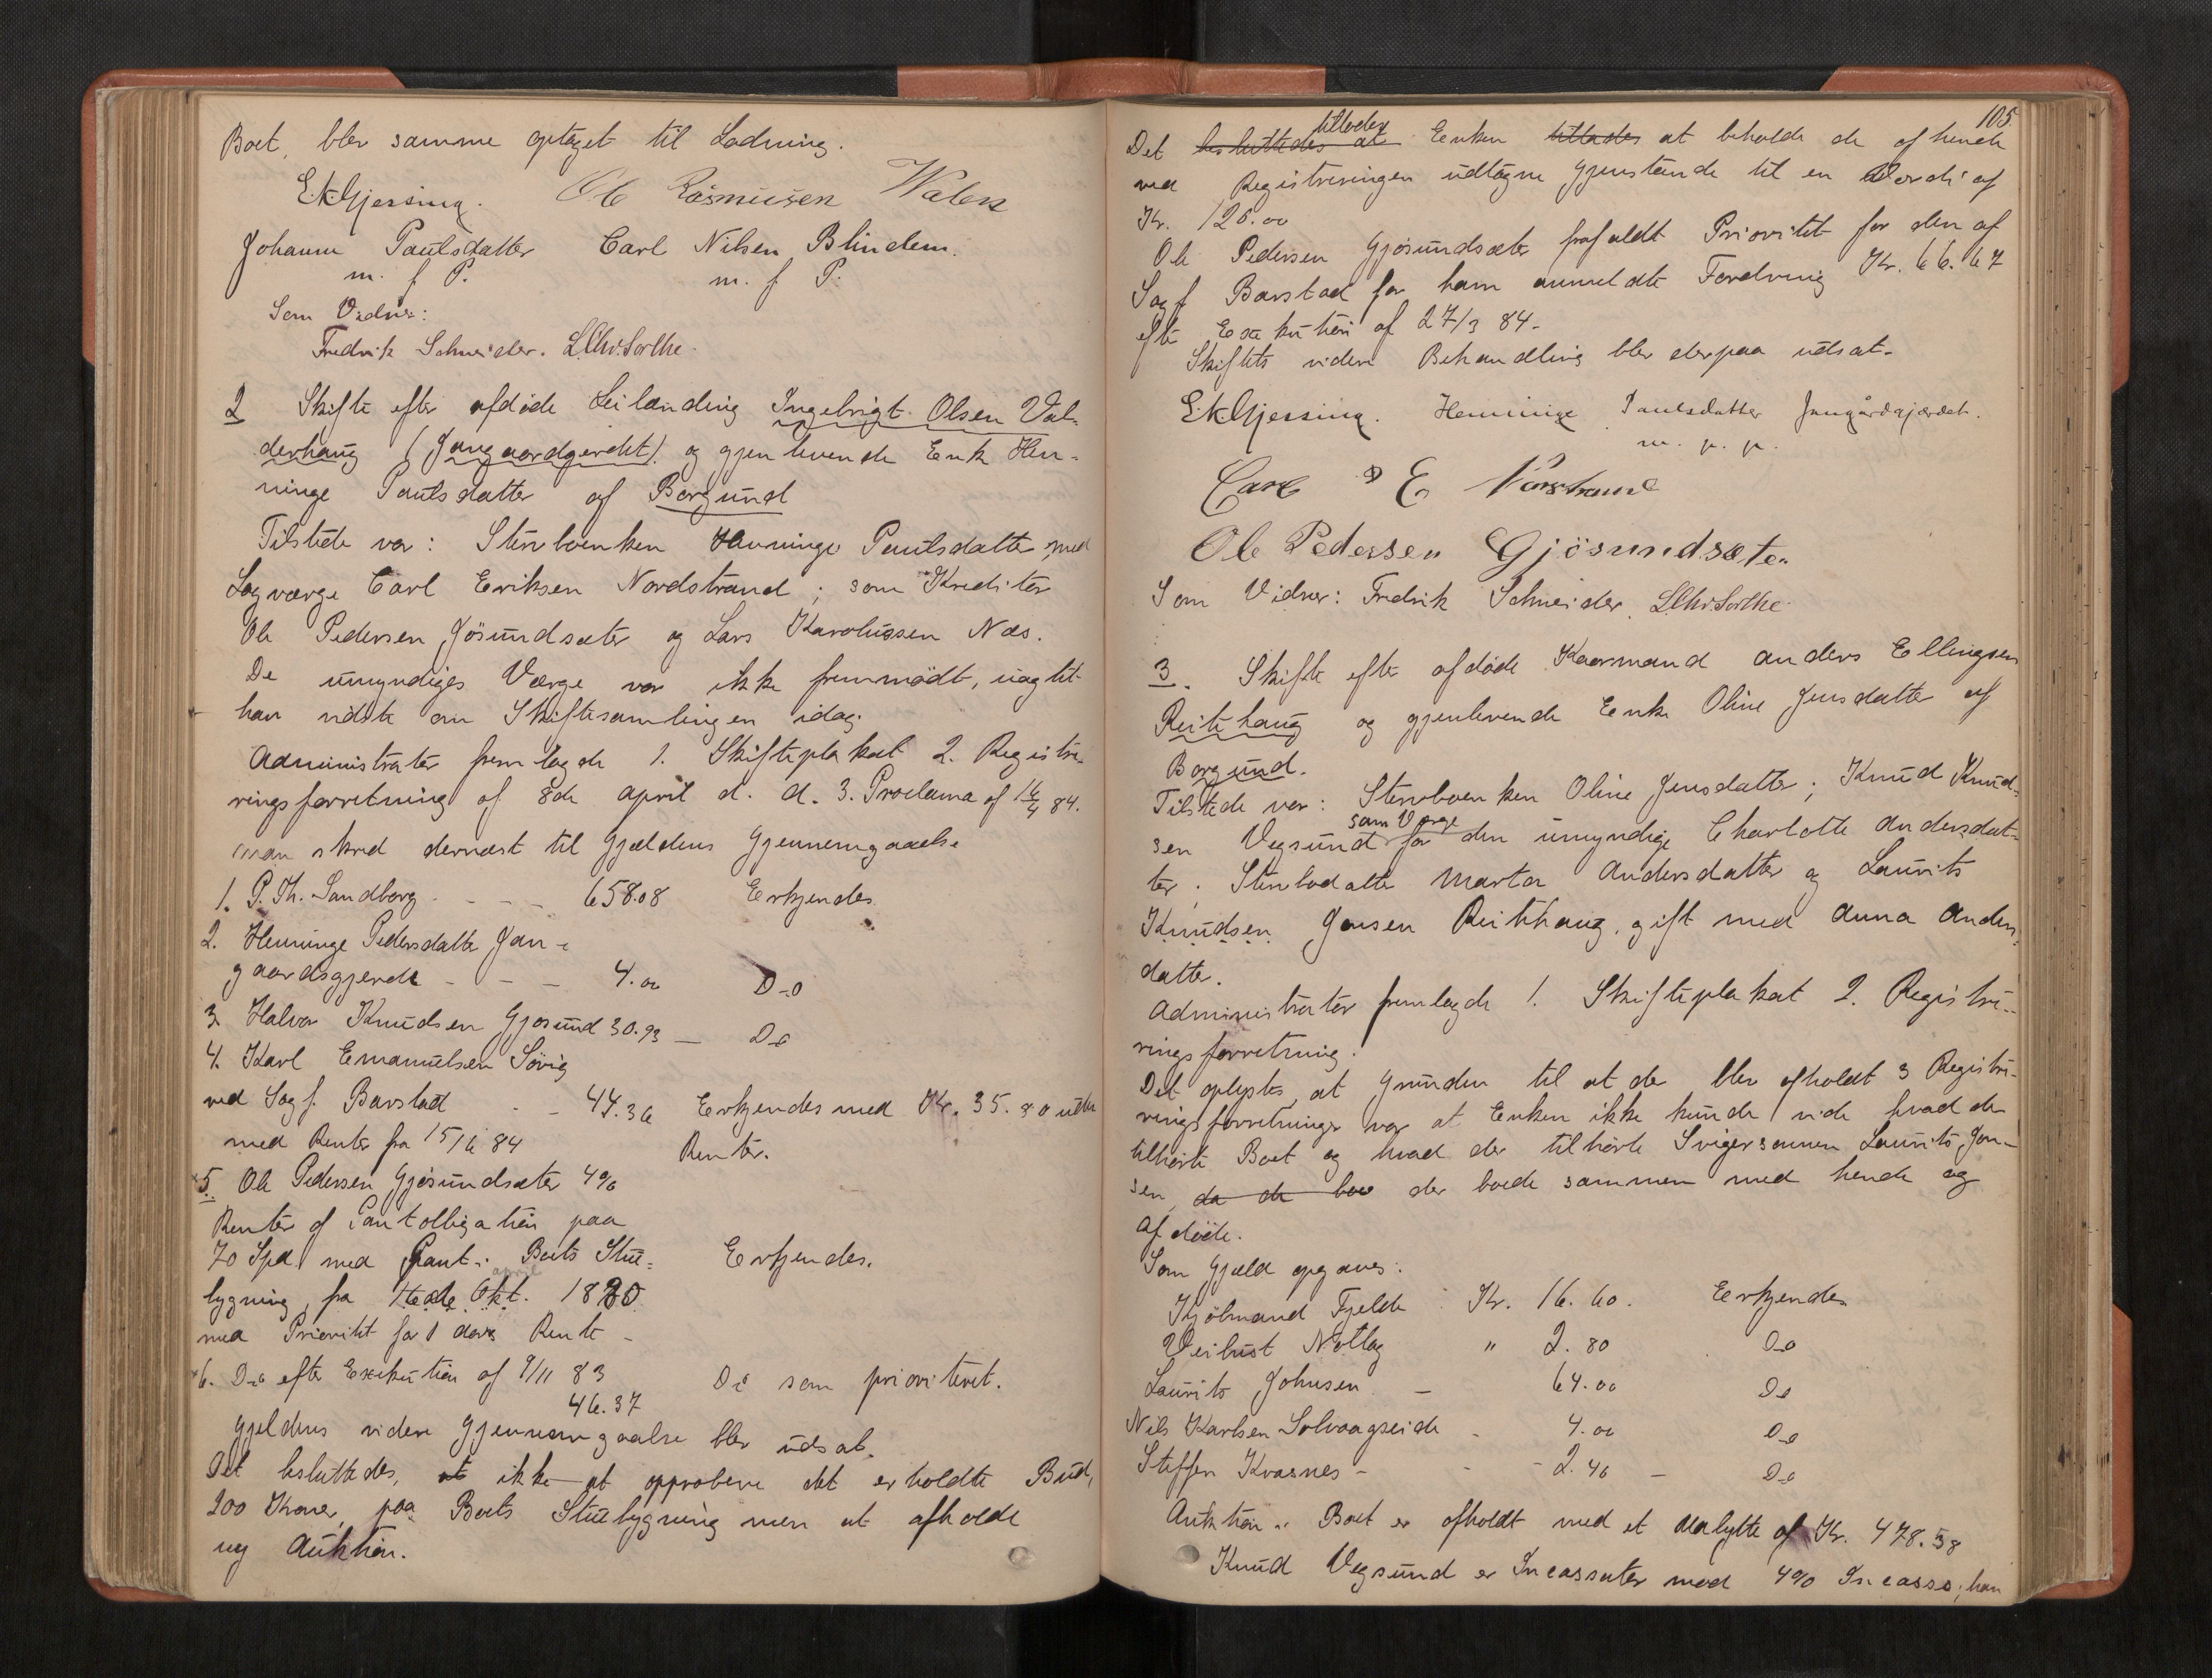 Boet, blev samme optaget til Lodning.
E.K.Gjersing. Ole Rasmusen Walen
Johanne Paulsdatter Carl Nilsen Blindem.
m. f P. m. f P.
Som Vidner:
Fredrik Schneider. L.Chr.Sørlhe.
2 Skifte efter afdøde Leilænding Ingebrigt Olsen Val-
derhaug (Jangaardgerdet) og gjenlevende Enke Hen-
ninge Paulsdatter af Borgund
Tilstede var: Stervboenken Henninge Paulsdatter med
Lagværge Carl Eriksen Nordstrand; som Kreditor
Ole Pedersen Jøsundsæter og Lars Karolussen Næs.
De umyndiges Værge var ikke fremmødt, uagtet
han vidste om Skiftesamlingen idag.
Administrator fremlagde 1. Skifteplakat 2. Registre-
ringsforretning af 8de april d. A. 3. Proclama af 16/4 84.
Man skred dernæst til Gjældens Gjennemgaaelse
1. P. Th. Sandborg - - - 658.08 Erkjendes
2. Henninge Pedersdatter Jan-
gaardsgjerde - - - 4.00 Do
3. Halvor Knudsen Gjøsund 30.93 — Do
4. Karl Emanuelsen Søvig
ved Sagf. Barstad - - 44.36 Erkjendes med Kr. 35.80 uden
med Renter fra 15/6 84 Renter.
5. Ole Pedersen Gjøsundsæter 4%
Renter af Pantobligation paa
70 Spd. med Pant i Boets Stue-
april
bygning, fra 14de Okt. 1880
med Prioritet for 1 Aars Rente -
6. Do efter Exekution af 9/11 83 Do som prioriteret.
46.37
Gjeldens videre Gjennemgaaelse blev udsat.
Det besluttedes, at ikke at approbere det erholdte Bud,
200 Kroner, paa Boets Stuebygning men at afholde
ny Auktion.
105
tillodes
Det besluttedes at Enken tillades at beholde de af hende
ved Registreringen udtagne Gjenstande til en Værdi af
Kr. 126.00
Ole Pedersen Gjøsundsæter frafaldt Prioritet for den af
Sagf Barstad for ham anmeldte Fordring Kr. 66.67
efter Exekution af 27/3 84-
Skiftets videre Behandling blev derpaa udsat-
E.K.Gjersing. Henninge Paulsdatter Jangårdgjærdet.
m. p. p.
Carl E Norstrand
Ole Pedersen Gjösundsæter
Som Vidner: Fredrik Schneider. L.Chr.Sørlhe.
3. Skifte efter afdøde Kaarmand Anders Ellingsen
Reitehaug og gjenlevende Enke Oline Jensdatter af
Borgund.
Tilstede var: Stervboenken Oline Jensdatter; Knud Knud-
som Værge
sen Vegsund for den umyndige Charlotte Andersdat-
ter; Stervbodatter Marta Andersdatter og Laurits
Knudsen Jonsen Reitehaug, gift med Anna Anders-
datter.
Administrator fremlagde 1. Skifteplakat 2. Registre-
ringsforretning.
Det oplystes, at Grunden til at der blev afholdt 3 Registre-
ringsforretninger var at Enken ikke kunde vide hvad der
tilhørte Boet og hvad der tilhørte Svigersønnen Laurits Jon-
sen, da de boe der boede sammen med hende og
afdøde.
Som Gjæld opgaves:
Kjølmand Fjelde : Kr. 16.60. Erkjendes
Veibust Notlag " 2.80 Do
Laurits Johnsen — 64.00 Do
Nils Karlsen Solvaagseide - 4.00 Do
Steffen Kvasnes - - - 2.40 — Do
Auktion i Boet er afholdt med et Udbytte af Kr. 478.58
Knud Vegsund er Incassator mod 4% Incasso; han